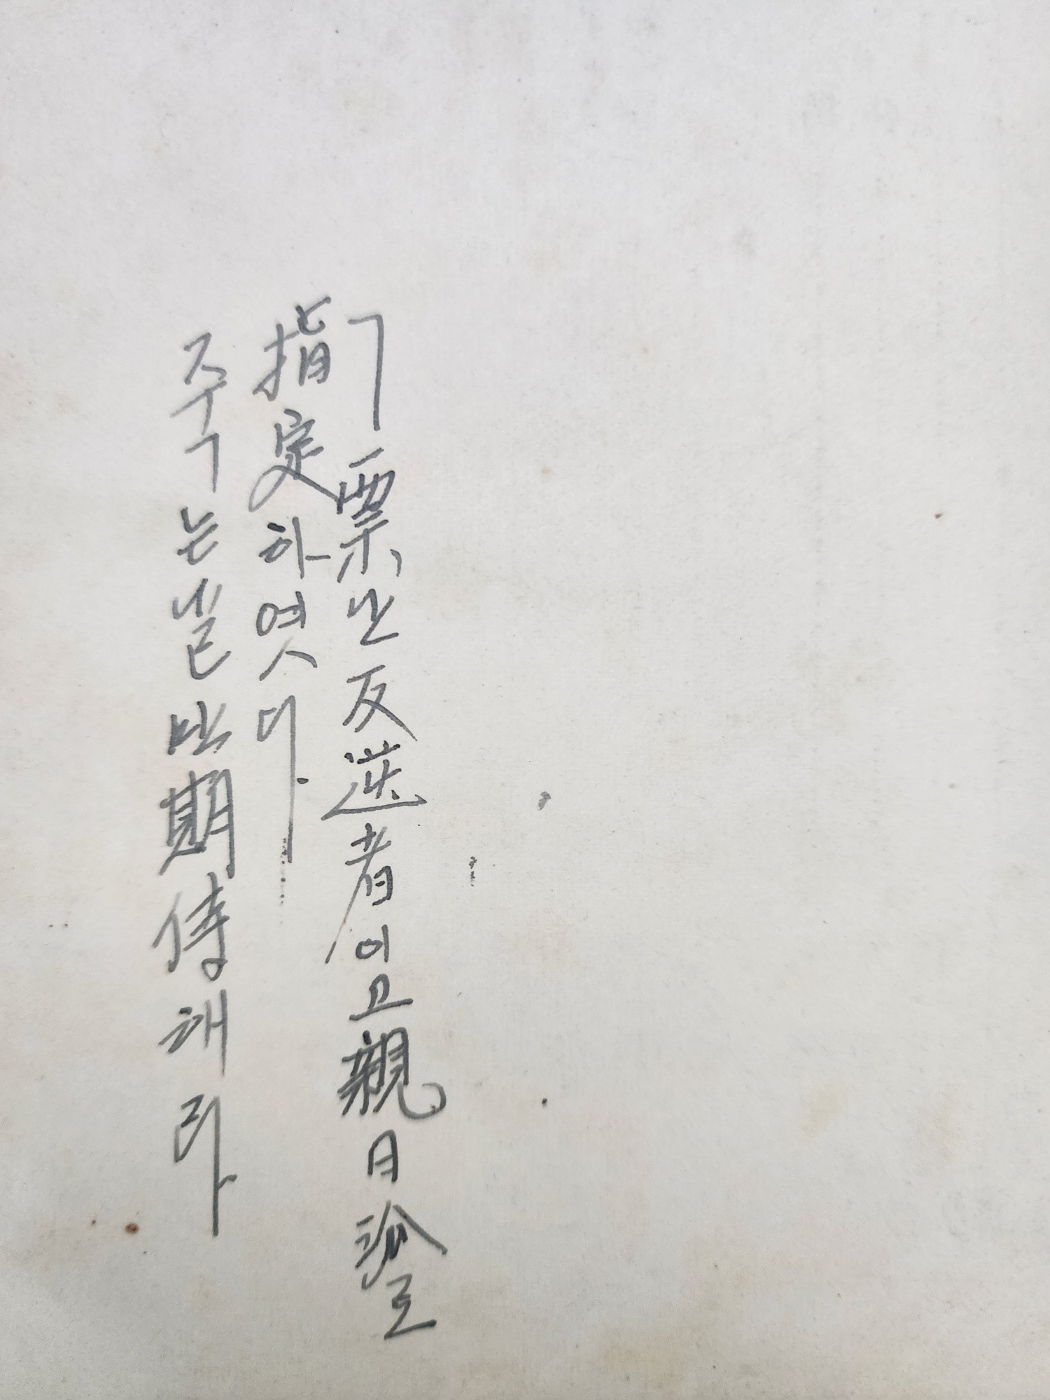 ㄱ票는反逆者이고親日派로
指定하엿다
주ㄱ는날만期待해라